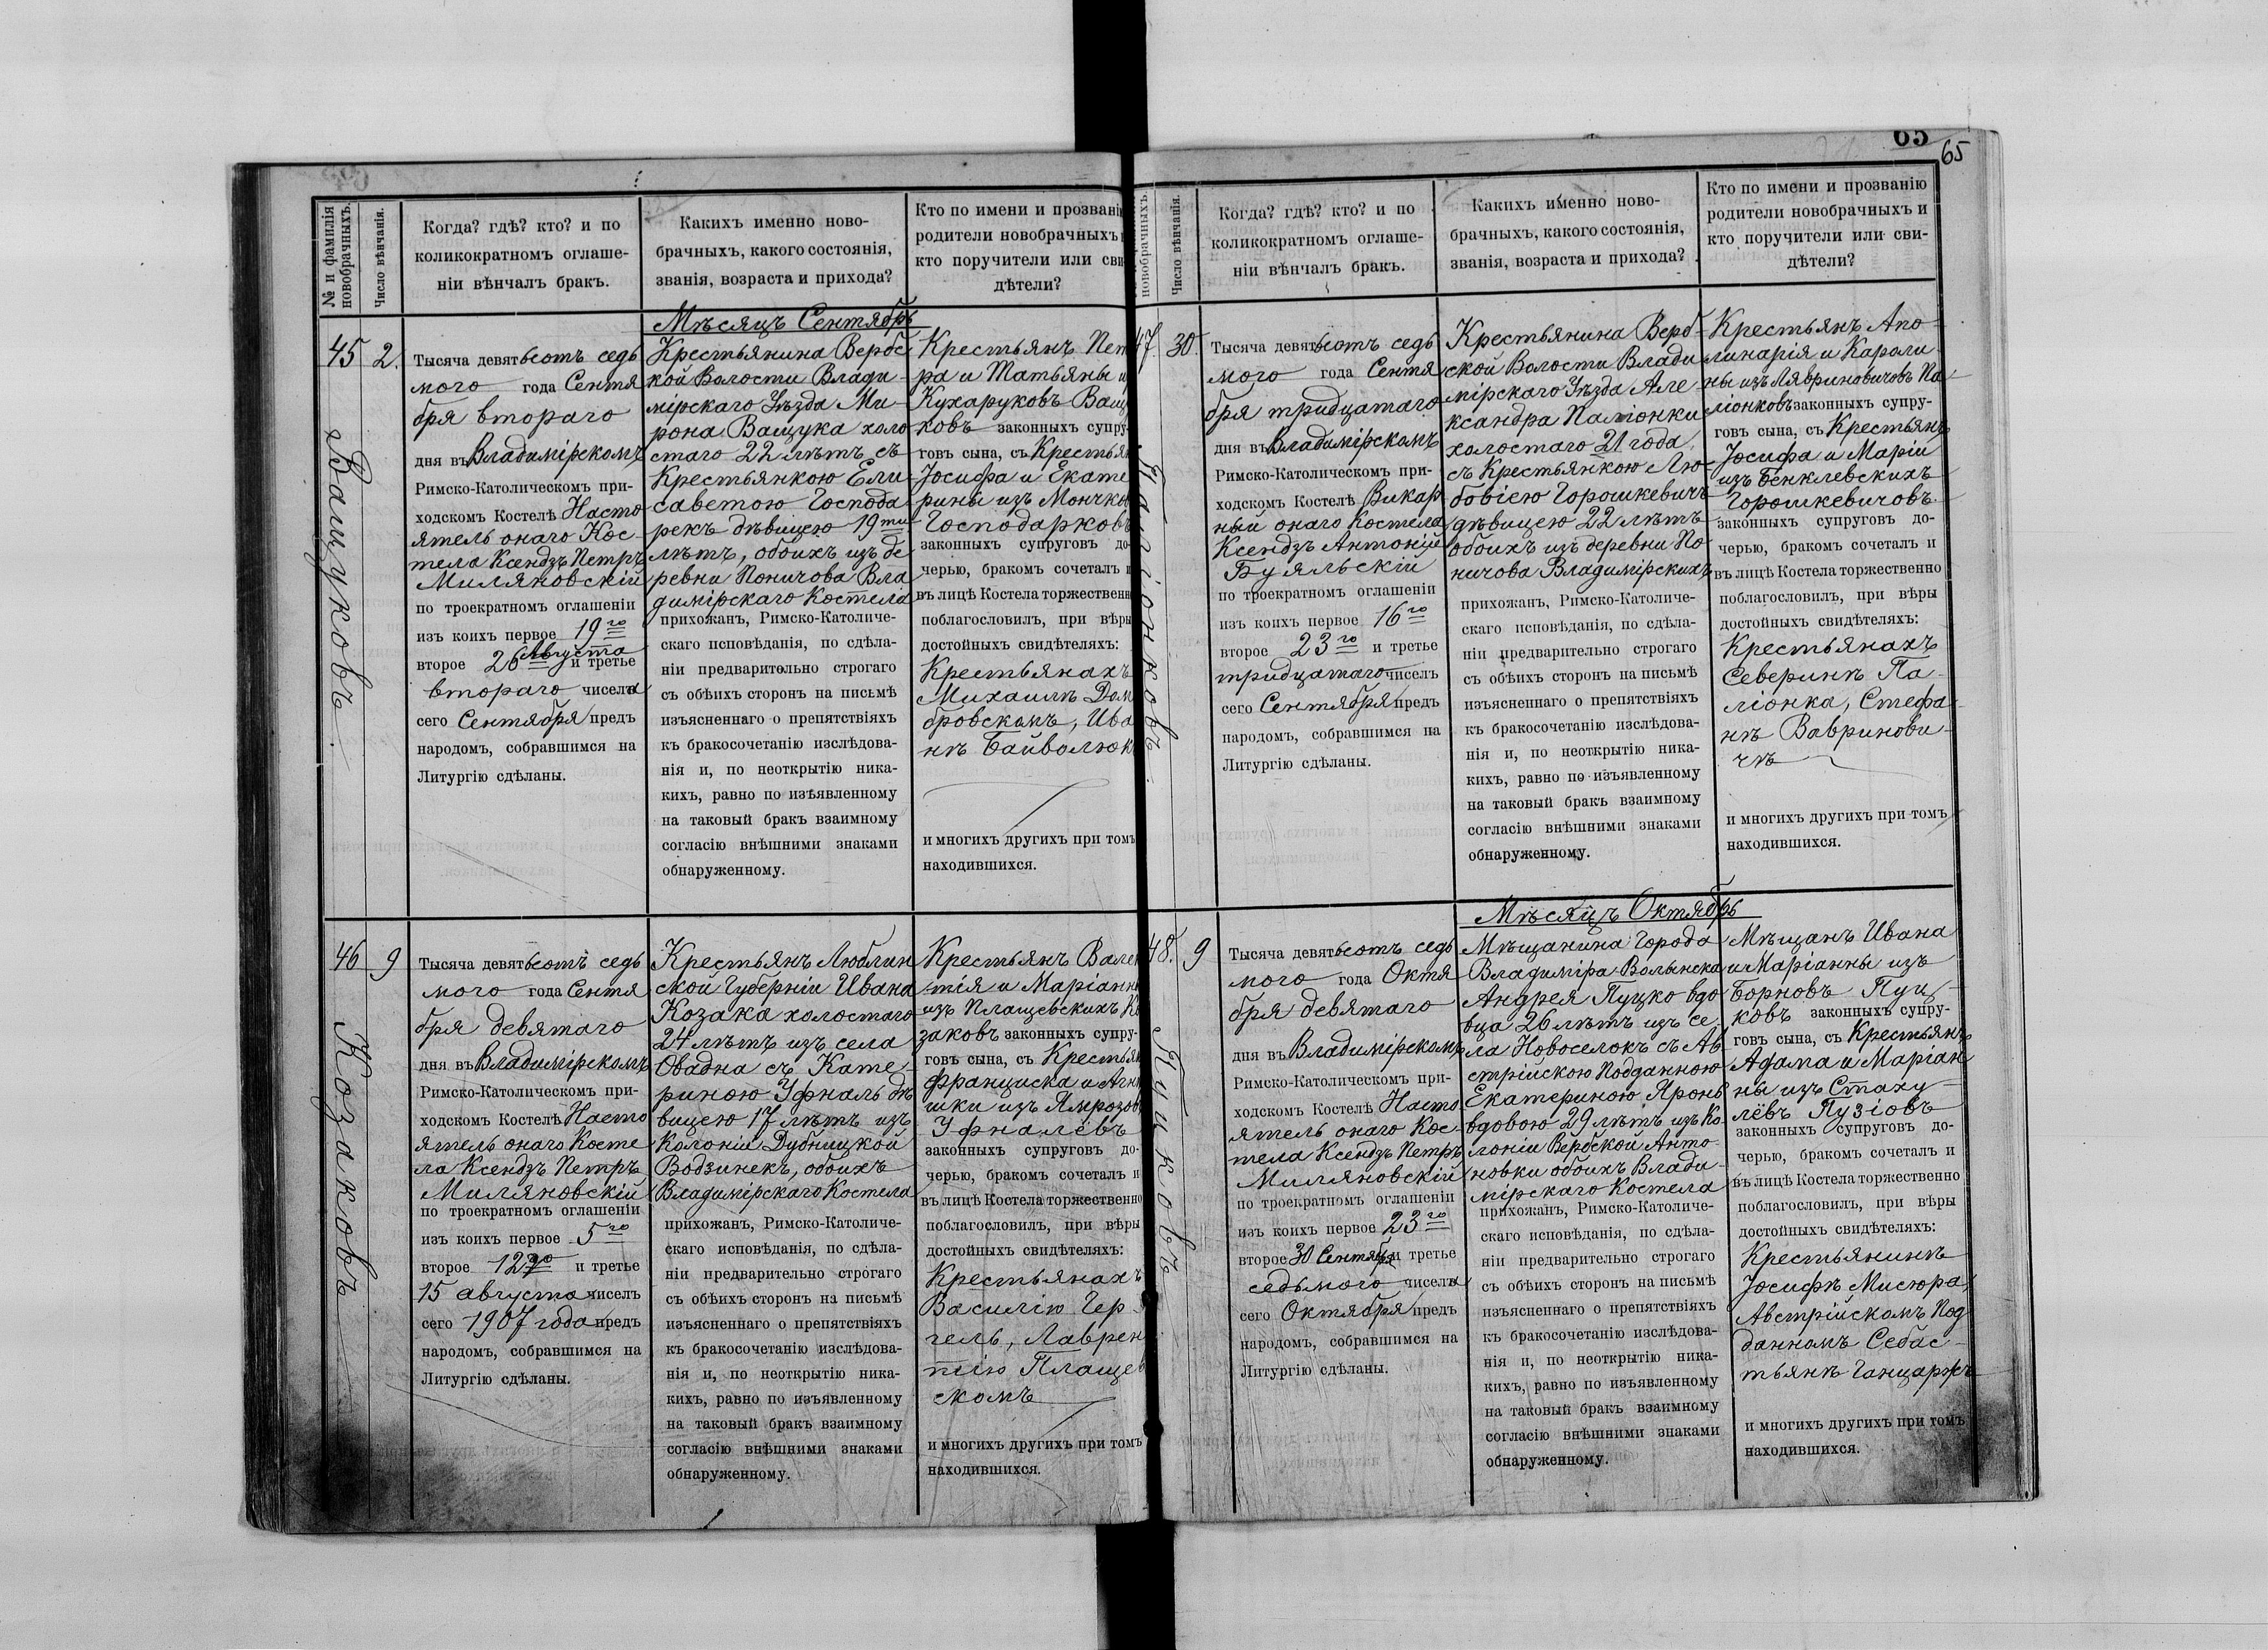 65
65
№ и фамилія
новобрачныхъ.
Число вѣнчанія.
Когда? гдѣ? кто? и по
коликократномъ оглаше-
ніи вѣнчалъ бракъ.
Какихъ именно ново-
брачныхъ, какого состоянія,
званія, возраста и прихода?
Кто по имени и прозвані
родители новобрачныхъ
кто поручители или сви-
дѣтели?
Мѣсяцъ Сентябрь
45
2.
Ващуковъ.
Тысяча девятьсотъ седь
мого года Сентя
бря второго
дня въ Владимірскомъ
Римско-Католическомъ при-
ходскомъ Костелѣ Насто
ятель онаго Кос-
тела Ксендзъ Петръ
Миляновскій
по троекратномъ оглашеніи
изъ коихъ первое 19го
Августа
второе 26го и третье
второго числа
сего Сентября предъ
народомъ, собравшимся на
Литургію сдѣланы.
Крестьянина Вербс
кой Волости Влади-
мірскаго Уѣзда Ми-
рона Ващука холо
стаго 22 лѣтъ съ
Крестьянкою Ели
саветою Господа
рекъ дѣвицею 19ти
лѣтъ, обоихъ изъ де
ревни Поничова Вла
димірскаго Костела
прихожанъ, Римско-Католиче-
скаго исповѣданія, по сдѣла-
ніи предварительно строгаго
съ обѣихъ сторонъ на письмѣ
изъясненнаго о препятствіяхъ
къ бракосочетанію изслѣдова-
нія и, по неоткрытію ника-
кихъ, равно по изъявленному
на таковый бракъ взаимному
согласію внѣшними знаками
обнаруженному.
Крестьянъ Пет
ра и Татьяны и
Кухаруковъ Ващ
ковъ законныхъ супру-
говъ сына, съ Крестья
Іосифа и Екате
рины изъ Мончко
Господарковъ
законныхъ супруговъ до-
черью, бракомъ сочеталъ и
въ лицѣ Костела торжественн
поблагословилъ, при вѣры
достойныхъ свидѣтеляхъ:
Крестьянахъ
Михаилѣ Дом
бровскомъ, Ива
нѣ Байволюк
и многихъ другихъ при томъ
находившихся.
46
9
Козаковъ
Тысяча девятьсотъ седь
мого года Сентя
бря девятаго
дня въ Владимірскомъ
Римско-Католическомъ при-
ходскомъ Костелѣ Насто
ятель онаго Косте
ла Ксендзъ Петръ
Миляновскій
по троекратномъ оглашеніи
изъ коихъ первое 5го
второе 12го и третье
15 августа чиселъ
сего 1907 года предъ
народомъ, собравшимся на
Литургію сдѣланы.
Крестьянъ Люблин
ской Губерніи Ивана
Козака холостаго
24 лѣтъ изъ села
Овадна съ Кате-
риною Уфналь дѣ
вицею 17 лѣтъ изъ
Колоніи Дубницкой
Водзинекъ, обоихъ
Владимірскаго Костела
прихожанъ, Римско-Католиче-
скаго исповѣданія, по сдѣла-
ніи предварительно строгаго
съ обѣихъ сторонъ на письмѣ
изъясненнаго о препятствіяхъ
къ бракосочетанію изслѣдова-
нія и, по неоткрытію ника-
кихъ, равно по изъявленному
на таковый бракъ взаимному
согласію внѣшними знаками
обнаруженному.
Крестьянъ Вален
тія и Маріанн
изъ Плащевскихъ Ко
заковъ законныхъ супру-
говъ сына, съ Крестья
Франциска и Агн
шки изъ Ямрозов
Уфналёвъ
законныхъ супруговъ до-
черью, бракомъ сочеталъ и
въ лицѣ Костела торжественно
поблагословилъ, при вѣры
достойныхъ свидѣтеляхъ:
Крестьянахъ
Василію Гер
гель, Лаврен
тію Плащев
скомъ
и многихъ другихъ при томъ
находившихся.
новобрачныхъ.
Число вѣнчанія.
Когда? гдѣ? кто? и по
коликократномъ оглаше-
ніи вѣнчалъ бракъ.
Какихъ именно ново-
брачныхъ, какого состоянія,
званія, возраста и прихода?
Кто по имени и прозванію
родители новобрачныхъ и
кто поручители или сви-
дѣтели?
47
30.
Паліонковъ.
Тысяча девятьсотъ седь
мого года Сентя
бря тридцатаго
дня въ Владимірскомъ
Римско-Католическомъ при-
ходскомъ Костелѣ Викар
ный онаго Костела
Ксендзъ Антоній
Буяльскій
по троекратномъ оглашеніи
изъ коихъ первое 16го
второе 23го и третье
тридцатаго чиселъ
сего Сентября предъ
народомъ, собравшимся на
Литургію сдѣланы.
Крестьянина Верб-
ской Волости Влади
мірскаго Уѣзда Але
ксандра Паліонки
холостаго 21 года,
съ Крестьянкою Лю-
бовіею Горошкевичъ
дѣвицею 22 лѣтъ
обоихъ изъ деревни По
ничова Владимірскихъ
прихожанъ, Римско-Католиче-
скаго исповѣданія, по сдѣла-
ніи предварительно строгаго
съ обѣихъ сторонъ на письмѣ
изъясненнаго о препятствіяхъ
къ бракосочетанію изслѣдова-
нія и, по неоткрытію ника-
кихъ, равно по изъявленному
на таковый бракъ взаимному
согласію внѣшними знаками
обнаруженному.
Крестьянъ Апо-
линарія и Кароли
ны изъ Лявриновичовъ Па
ліонковъ законныхъ супру-
говъ сына, съ Крестьянъ
Іосифа и Маріи
изъ Бенклевскихъ
Горошкевичовъ
законныхъ супруговъ до-
черью, бракомъ сочеталъ и
въ лицѣ Костела торжественно
поблагословилъ, при вѣры
достойныхъ свидѣтеляхъ:
Крестьянахъ
Северинѣ Па-
ліонка, Стефа-
нѣ Вавринови-
чѣ
и многихъ другихъ при томъ
находившихся.
Мѣсяцъ Октябрь
48.
9
Пуцковъ
Тысяча девятьсотъ седь
мого года Октя
бря девятаго
дня въ Владимірскомъ
Римско-Католическомъ при-
ходскомъ Костелѣ Насто
ятель онаго Кос-
тела Ксендзъ Петръ
Миляновскій
по троекратномъ оглашеніи
изъ коихъ первое 23го
второе 30 Сентября и третье
седьмого числа
сего Октября предъ
народомъ, собравшимся на
Литургію сдѣланы.
Мѣщанина Города
Владиміра-Волынска
Андрея Пуцко вдо
вца 26 лѣтъ изъ се
ла Новоселокъ съ Ав
стрійскою Подданною
Екатериною Яронь
вдовою 29 лѣтъ изъ Ко
лоніи Вербской Анто-
новки обоихъ Влади-
мірскаго Костела
прихожанъ, Римско-Католиче-
скаго исповѣданія, по сдѣла-
ніи предварительно строгаго
съ обѣихъ сторонъ на письмѣ
изъясненнаго о препятствіяхъ
къ бракосочетанію изслѣдова-
нія и, по неоткрытію ника-
кихъ, равно по изъявленному
на таковый бракъ взаимному
согласію внѣшними знаками
обнаруженному.
Мѣщанъ Ивана
и Маріанны изъ
Борновъ Пуц-
ковъ законныхъ супру-
говъ сына, съ Крестьянъ
Адама и Маріан
ны изъ Стаху-
лёвъ Пузіовъ
законныхъ супруговъ до-
черью, бракомъ сочеталъ и
въ лицѣ Костела торжественно
поблагословилъ, при вѣры
достойныхъ свидѣтеляхъ:
Крестьянинѣ
Іосифѣ Мисюра,
Австрійскомъ Под
данномъ Себас-
тьянѣ Ганцаржъ
и многихъ другихъ при томъ
находившихся.